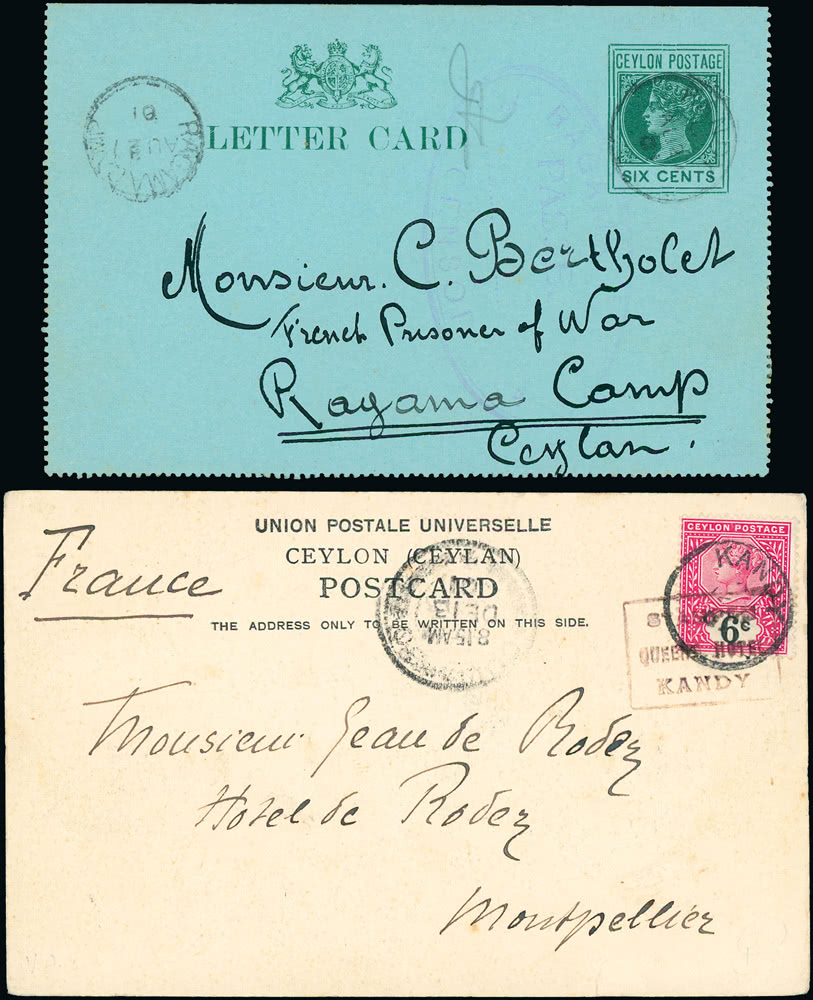 CEYLON POSTAGE
LETTER CARD
SIX CENTS
01
AU 27
RAGAMA CAMP
CENSOR
Monsieur. C. Bertholet
French Prisoner of War
Ragama Camp
Ceylan.
UNION POSTALE UNIVERSELLE
CEYLON (CEYLAN)
POSTCARD
THE ADDRESS ONLY TO BE WRITTEN ON THIS SIDE.
France
CEYLON POSTAGE
KANDY
6c
QUEENS HOTEL
KANDY
8.15AM
DE 13
Monsieur Jean de Rodez
Hotel de Rodez
Montpellier